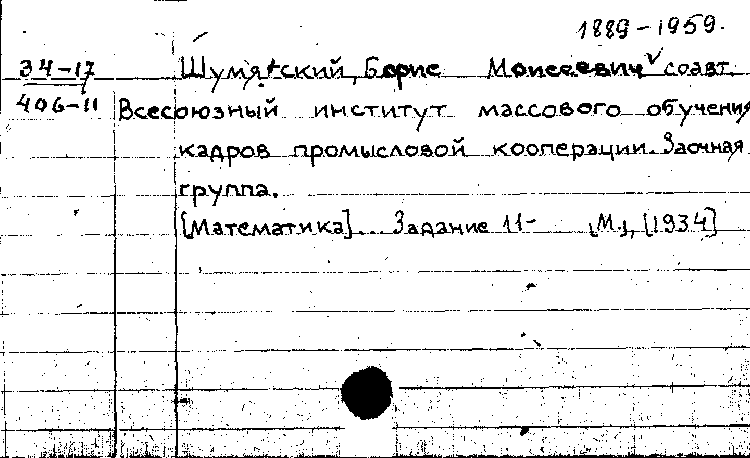 1889-1959.
34-17 Шумятский, Борис Моисеевич соавт.
406-11 Всесоюзный институт массового обучения
кадров промысловой кооперации. Заочная
группа.
[Математика]... Задание 11- [М.], [1934]